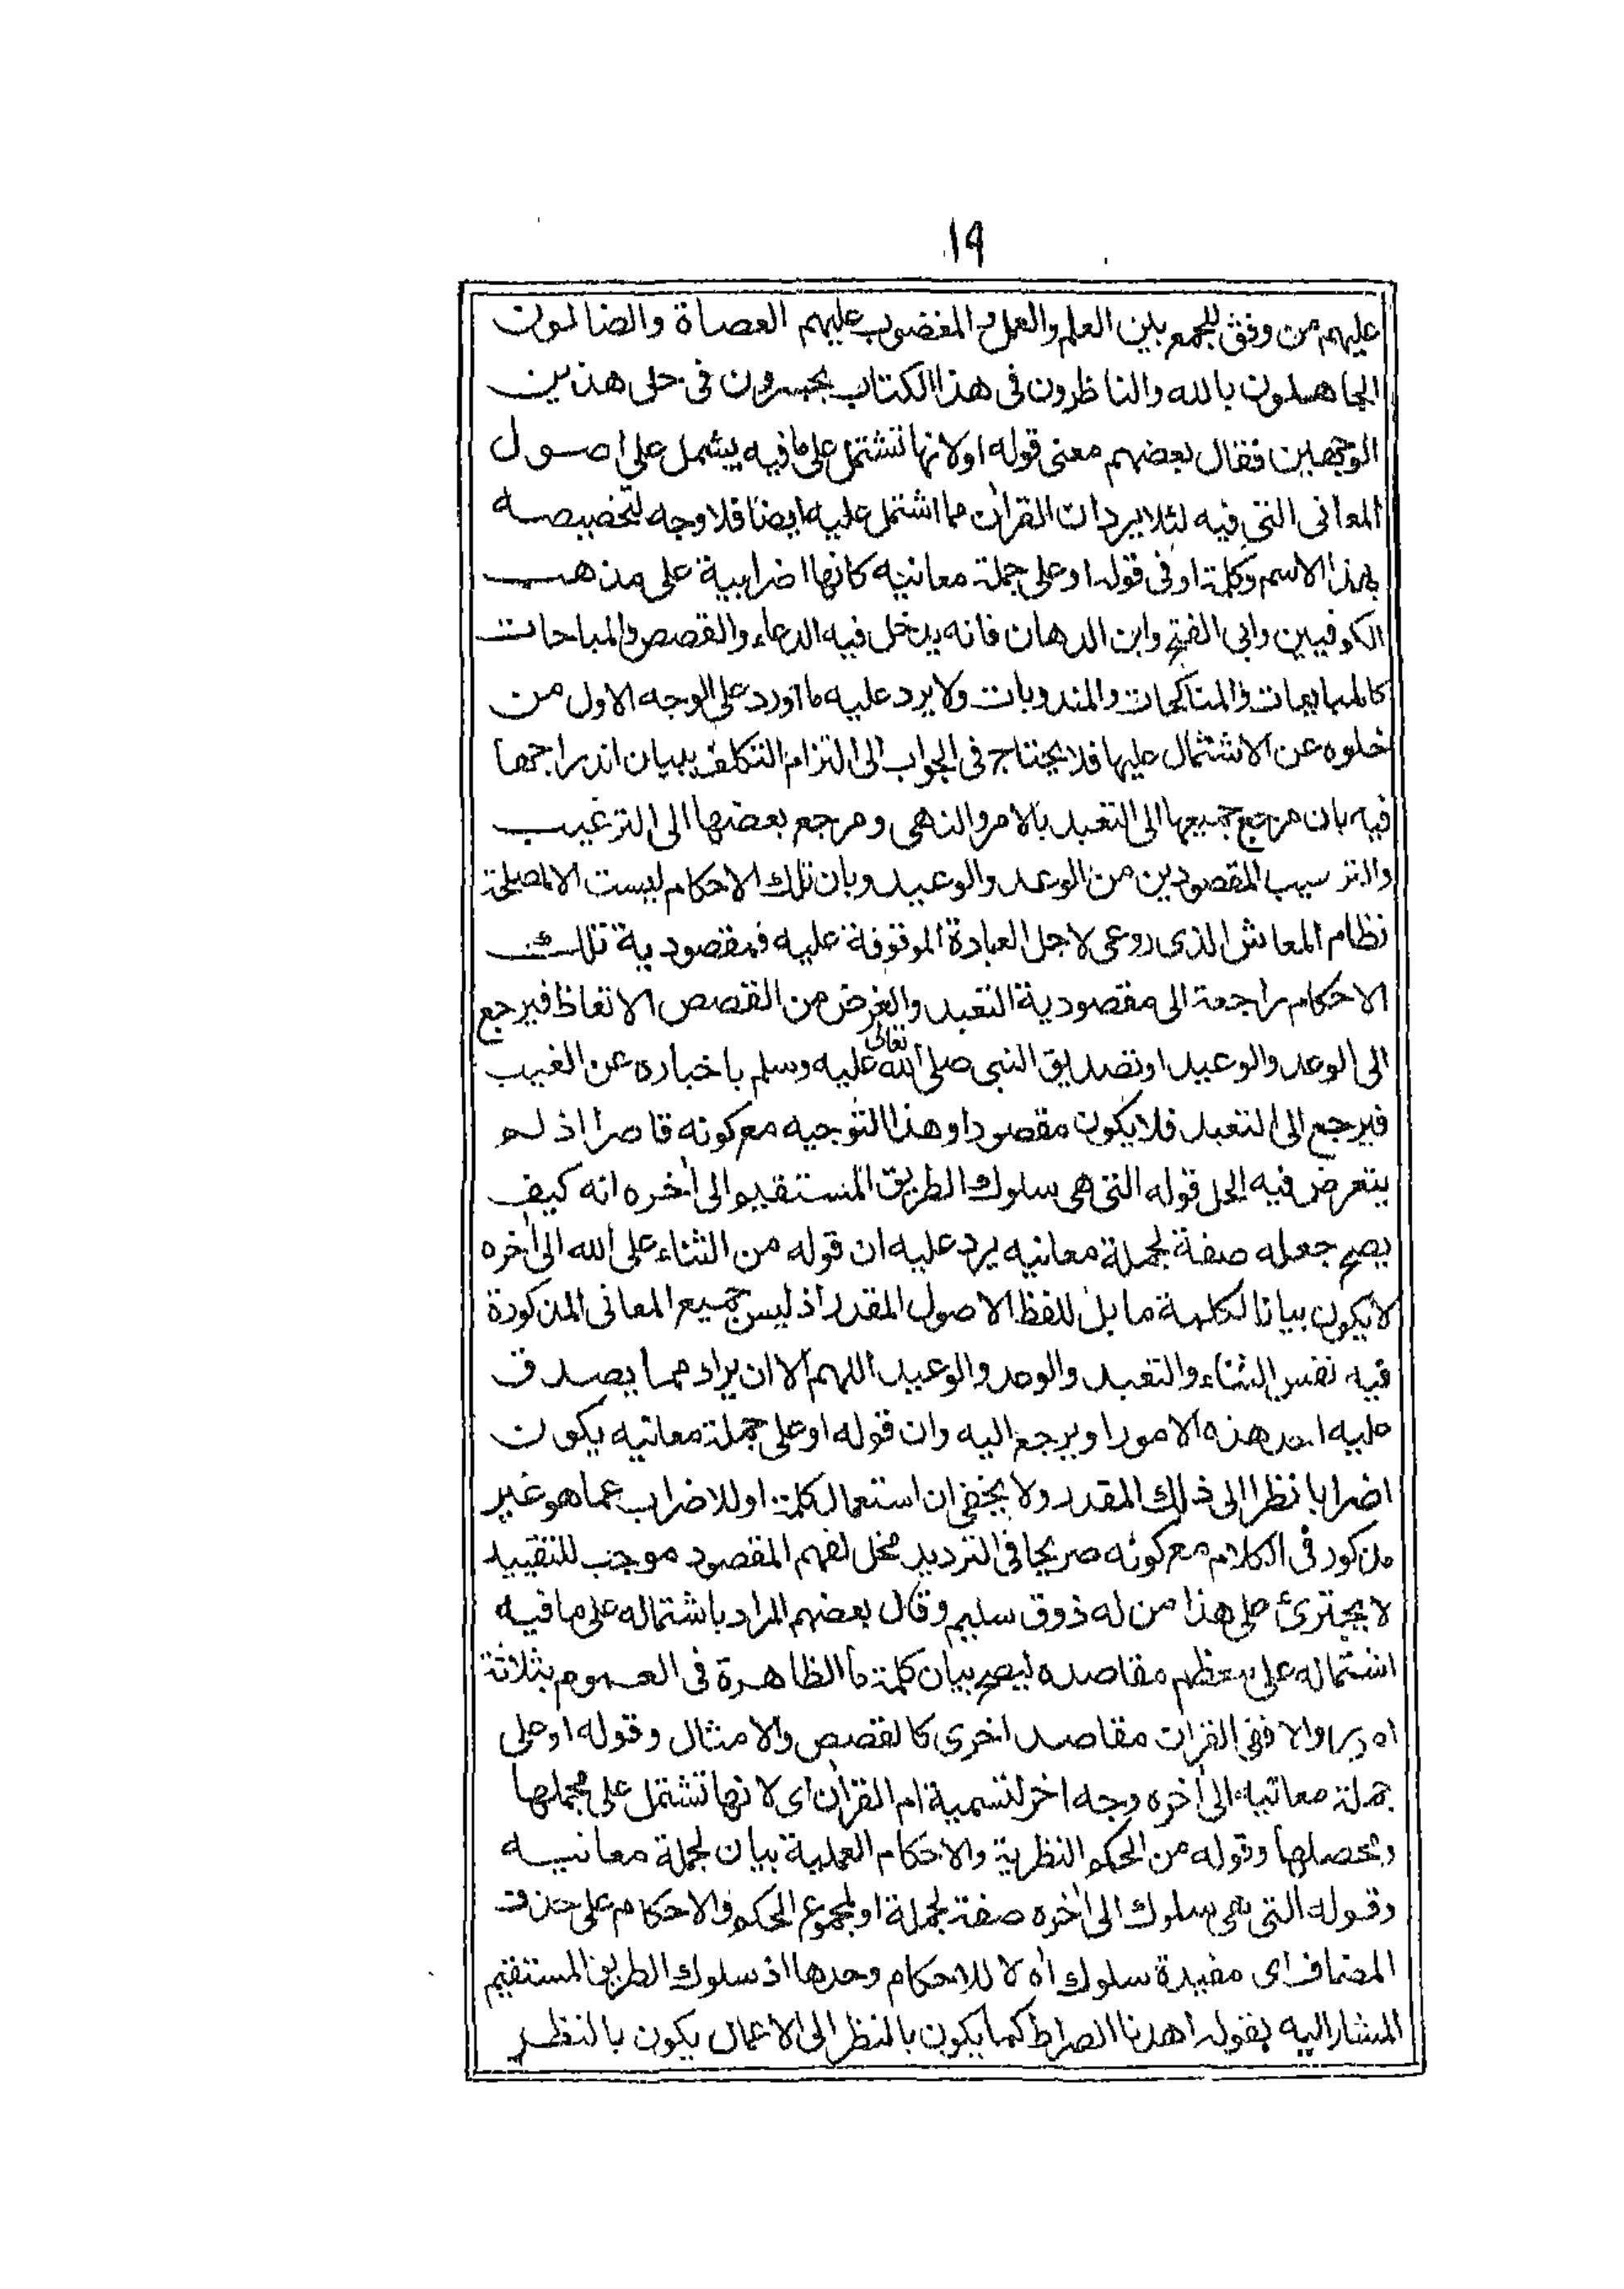 ١٩
عليهم من وفق للجمع بين العلم والعمل والمغضوب عليهم العصاة والضالون
الجاهلون بالله والناظرون فى هذا الكتاب يجسرون فى حل هذين
الوجهين فقال بعضهم معنى قوله اولانها تشتمل على ما فيه يشمل على اصول
المعانى التى فيه لئلا يرد ان القرآن مما اشتمل عليه ايضا فلا وجه لتخصيصه
بهذا الاسم وكلمة او فى قوله او على جملة معانيه كانها اضرابية على مذهب
الكوفيين وابى الفتح وابن الدهان فانه يدخل فيه الدعاء والقصص والمباحات
كالمبايعات والمناكحات والمندوبات ولا يرد عليه ما اورد على الوجه الاول من
خلوه عن الاشتمال عليها فلا يحتاج فى الجواب الى التزام التكلف ببيان اندراجها
فيه بان مرجع جميعها الى التعبد بالامر والنهى ومرجع بعضها الى الترغيب
والترهيب المقصودين من الوعد والوعيد وبان تلك الاحكام ليست الا لمصلحة
نظام المعاش الذى روعى لاجل العبادة الموقوفة عليه فمقصودية تلك
الاحكام راجعة الى مقصودية التعبد والغرض من القصص الاتعاظ فيرجع
الى الوعد والوعيد او تصديق النبى صلى الله تعالى عليه وسلم باخباره عن الغيب
فيرجع الى التعبد فلا يكون مقصودا وهذا التوجيه مع كونه قاصرا اذ لم
يتعرض فيه الحل قوله التى هى سلوك الطريق المستقيم الى آخره انه كيف
يصح جعله صفة لجملة معانيه يرد عليه ان قوله من الثناء على الله الى آخره
لا يكون بيانا لكلمة ما بل للفظ الاصول المقدر اذ ليس جميع المعانى المذكورة
فيه نفس الثناء والتعبد والوعد والوعيد اللهم الا ان يراد مما يصدق
عليه احد هذه الامور او يرجع اليه وان قوله او على جملة معانيه يكون
اضرابا نظرا الى ذلك المقدر ولا يخفى ان استعمال كلمة او للاضراب عما هو غير
مذكور فى الكلام مع كونه صريحا فى الترديد مخل لفهم المقصود موجب للتقييد
لا يجترئ على هذا من له ذوق سليم وقال بعضهم المراد باشتماله على ما فيه
اشتماله على معظم مقاصده ليصح بيان كلمة ما الظاهرة فى العموم بثلاثة
امور والا ففى القرآن مقاصد اخرى كالقصص والامثال وقوله او على
جملة معانيه الى آخره وجه اخر لتسمية ام القرآن اى لانها تشتمل على مجملها
ومحصلها وقوله من الحكم النظرية والاحكام العملية بيان لجملة معانيه
وقوله التى هى سلوك الى آخره صفة لجملة او لمجموع الحكم والاحكام على حذف
المضاف اى مفيدة سلوك اه لا للاحكام وحدها اذ سلوك الطريق المستقيم
المشار اليه بقوله اهدنا الصراط كما يكون بالنظر الى الاعمال يكون بالنظر